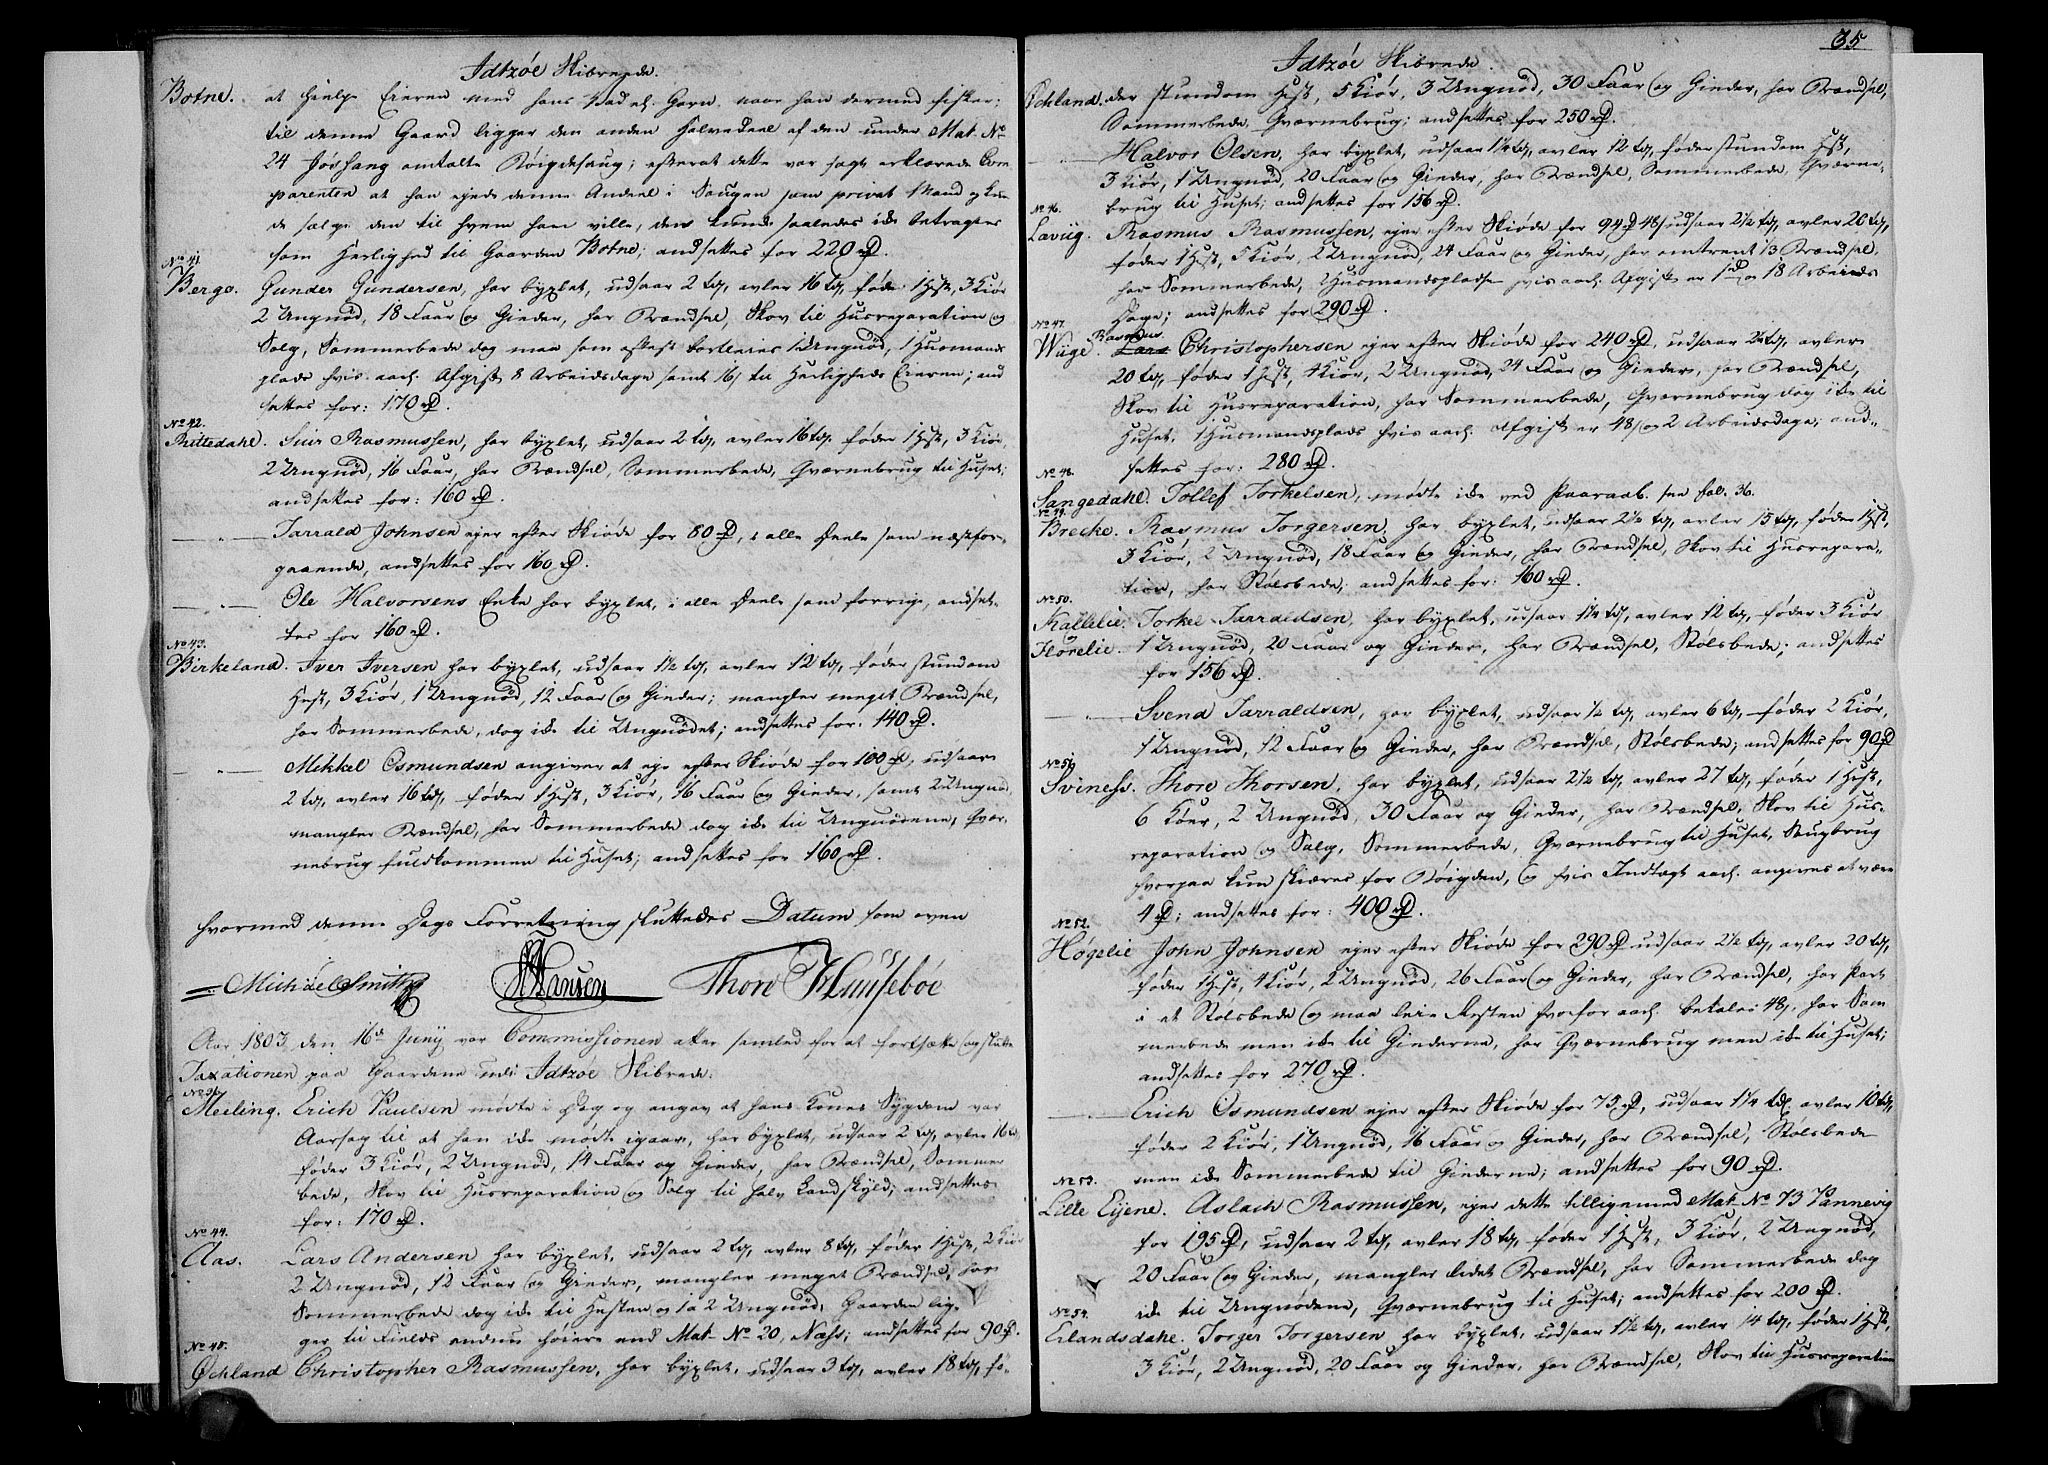 Adtzøe Skibrede.
Botne. at hielpe Eieren med hans Vad el. Garn, naar han dermed fisker;
til denne Gaard ligger den anden halvedeel af den under Mat. No
24 Høshang omtalte Bøigdesaug; efterat dette var sagt erklærede Com-
parenten at han ejede denne Andeel i Saugen som privat Mand og kun-
de sælge den til hvem han ville, den kunde saaledes ikke betragtes
som Herlighed til Gaarden Botne; andsettes for 220 rD.
No 41.
Berge. Gunder Gundersen, har byxlet, udsaar 2 td, avler 16 td, føder 1 Hest, 3 Kiør
2 Ungnød, 18 Faar og Gieder, har Brændsel, Skov til Husreparation og
Salg, Sommerbede dog maa som oftest bortleies 1 Ungnød, 1 Husmands
plads hvis aarl. Afgift 8 Arbeidsdage samt 16 s til Herligheds Eieren; and
settes for: 170 rD.
No 42.
Rittedahl. Siur Rasmussen, har byxlet, udsaar 2 td, avler 16 td, føder 1 Hest, 3 Kiør,
2 Ungnød, 16 Faar, har Brændsel, Sommerbede, Qværnebrug til Huset;
andsettes for: 160 rD.
— " — Tarrald Johnsen ejer efter Skiøde for 80 rD, i alle Deele som næstfor-
gaaende, andsettes for 160 rD.
— " — Ole Halvorsens Enke har byxlet, i alle Deele som forrige, andset-
tes for 160 rD.
No 43.
Birkeland. Iver Iversen har byxlet, udsaar 1½ td, avler 12 td, føder stundom
Hest, 3 Kiør, 1 Ungnød, 12 Faar og Gieder; mangler meget Brændsel,
har Sommerbede, dog ikke til Ungnødet; andsettes for: 140 rD.
— " — Mikkel Osmundsen angiver at eje efter Skiøde for 100 rD, udsaar
2 td, avler 16 td, føder 1 Hest, 3 Kiør, 16 Faar og Gieder, samt 2 Ungnød,
mangler Brændsel, har Sommerbede dog ikke til Ungnødene, Qvær-
nebrug fuldkommen til Huset; andsettes for 160 rD.
Hvormed denne Dags Forretning sluttedes Datum som oven
Michael Smith HHansen Thore Huusebøe
Aar 1803 den 16de Junÿ var Commissionen atter samled for at fortsætte og slutte
Taxationen paa Gaardene udi Adtzøe Skibrede.
Meling. Erich Paulsen mødte i Dag og angav at hans Kones Sygdom var
Aarsag til at han ikke mødte igaar, har byxlet, udsaar 2 td, avler 16 td,
føder 3 Kiør, 2 Ungnød, 14 Faar og Gieder, har Brændsel, Sommer
bede, Skov til Husreparation og Salg til halv Landskyld; andsettes
for: 170 rD.
No 44.
Aas. Lars Andersen har byxlet, udsaar 2 td, avler 8 td, føder 1 Hest, 2 Kiør
2 Ungnød, 12 Faar og Gieder, mangler meget Brændsel, har
Sommerbede dog ikke til Hesten og 1 a 2 Ungnød, Gaarden lig-
ger til Fields endnu høiere end Mat. No 20, Næss; andsettes for 90 rD.
No 45.
Øchland Christopher Rasmussen, har byxlet, udsaar 3 td, avler 18 td, fø-
35
Adtzøe Skibrede.
Øchland. der stundom Hest, 5 Kiør, 3 Ungnød, 30 Faar og Gieder, har Brændsel,
Sommerbede, Qværnebrug; andsettes for 250 rD.
— " — Halvor Olsen, har byxlet, udsaar 1½ td, avler 12 td, føder stundom Hest,
3 Kiør, 1 Ungnød, 20 Faar og Gieder, har Brændsel, Sommerbede, Qværne-
brug til Huset; andsettes for 156 rD.
No 46.
Laviig. Rasmus Rasmussen, ejer efter Skiøde for 94 rD 48 s udsaar 2½ td, avler 20 td,
føder 1 Hest, 5 Kiør, 2 Ungnød, 24 Faar og Gieder, har omtrent ⅓ Brændsel,
har Sommerbede, 2 Husmandspladse hvis aarl. Afgift er 1 rD og 18 Arbeids
Dage; andsettes for 290 rD.
No 47.
Wiige. Rasmus Christophersen ejer efter Skiøde for 240 rD, udsaar 2½ td, avler
20 td, føder 1 Hest, 4 Kiør, 2 Ungnød, 24 Faar og Gieder, har Brændsel,
Skov til Husreparation, har Sommerbede, Qværnebrug dog ikke til
Huset, 1 Husmandsplads hvis aarl. Afgift er 48 s og 2 Arbeidsdage; and-
settes for: 280 rD.
No 48.
Sangedahl. Tollef Torkelsen, mødte ikke ved Paaraab. see fol. 36.
No 49.
Brecke. Rasmus Torgersen, har byxlet, udsaar 2½ td, avler 15 td, føder 1 Hest,
3 Kiør, 2 Ungnød, 18 Faar og Gieder, har Brændsel, Skov til Husrepara-
tion, har Stølsbede; andsettes for: 160 rD.
No 50.
Kallelie. Torkel Tarraldsen, har byxlet, udsaar 1¼ td, avler 12 td, føder 3 Kiør
Florelie. 1 Ungnød, 20 Faar og Gieder, har Brændsel, Stølsbede; andsettes
for 156 rD.
— " — Svend Tarraldsen, har byxlet, udsaar ½ td, avler 6 td, føder 2 Kiør,
1 Ungnød, 12 Faar og Gieder, har Brændsel, Stølsbede; andsettes for 90 rD
No 51.
Sviness. Thore Thorsen, har byxlet, udsaar 2½ td, avler 27 td, føder 1 Hest,
6 Kiør, 2 Ungnød, 30 Faar og Gieder, har Brændsel, Skov til Hus-
reparation og Salg, Sommerbede, Qværnebrug til Huset, Saugbrug
hvorpaa kun skiæres for Bøigden, og hvis Indtægt aarl. angives at være
4 rD; andsettes for: 400 rD.
No 52.
Høgelie John Johnsen ejer efter Skiøde for 290 rD udsaar 2½ td, avler 20 td,
føder 1 Hest, 4 Kiør, 2 Ungnød, 26 Faar og Gieder, har Brændsel, har Part
i et Stølsbede og maa leie Resten hvorfor aarl. betales 48 s, har Som
merbede men ikke til Giederne, har Qværnebrug men ikke til Huset;
andsettes for 270 rD.
— " — Erich Osmundsen ejer efter Skiøde for 75 rD, udsaar 1¼ td, avler 10 td,
føder 2 Kiør, 1 Ungnød, 16 Faar og Gieder, har Brændsel, Stølsbede
men ikke Sommerbede til Giederne; andsettes for 90 rD.
No 53.
Lille Eijene. Aslach Rasmussen, ejer dette tilligemed Mat. No 73 Vannevig
for 195 rD, udsaar 2 td, avler 18 td, føder 1 Hest, 3 Kiør, 2 Ungnød,
20 Faar og Gieder, mangler lidet Brændsel, har Sommerbede dog
ikke til Ungnødene, Qværnebrug til Huset; andsettes for 200 rD.
No 54.
Erlandsdahl. Torger Torgersen har byxlet, udsaar 1½ td, avler 14 td, føder 1 Hest,
3 Kiør, 2 Ungnød, 20 Faar og Gieder, har Brændsel, Skov til Husreparation